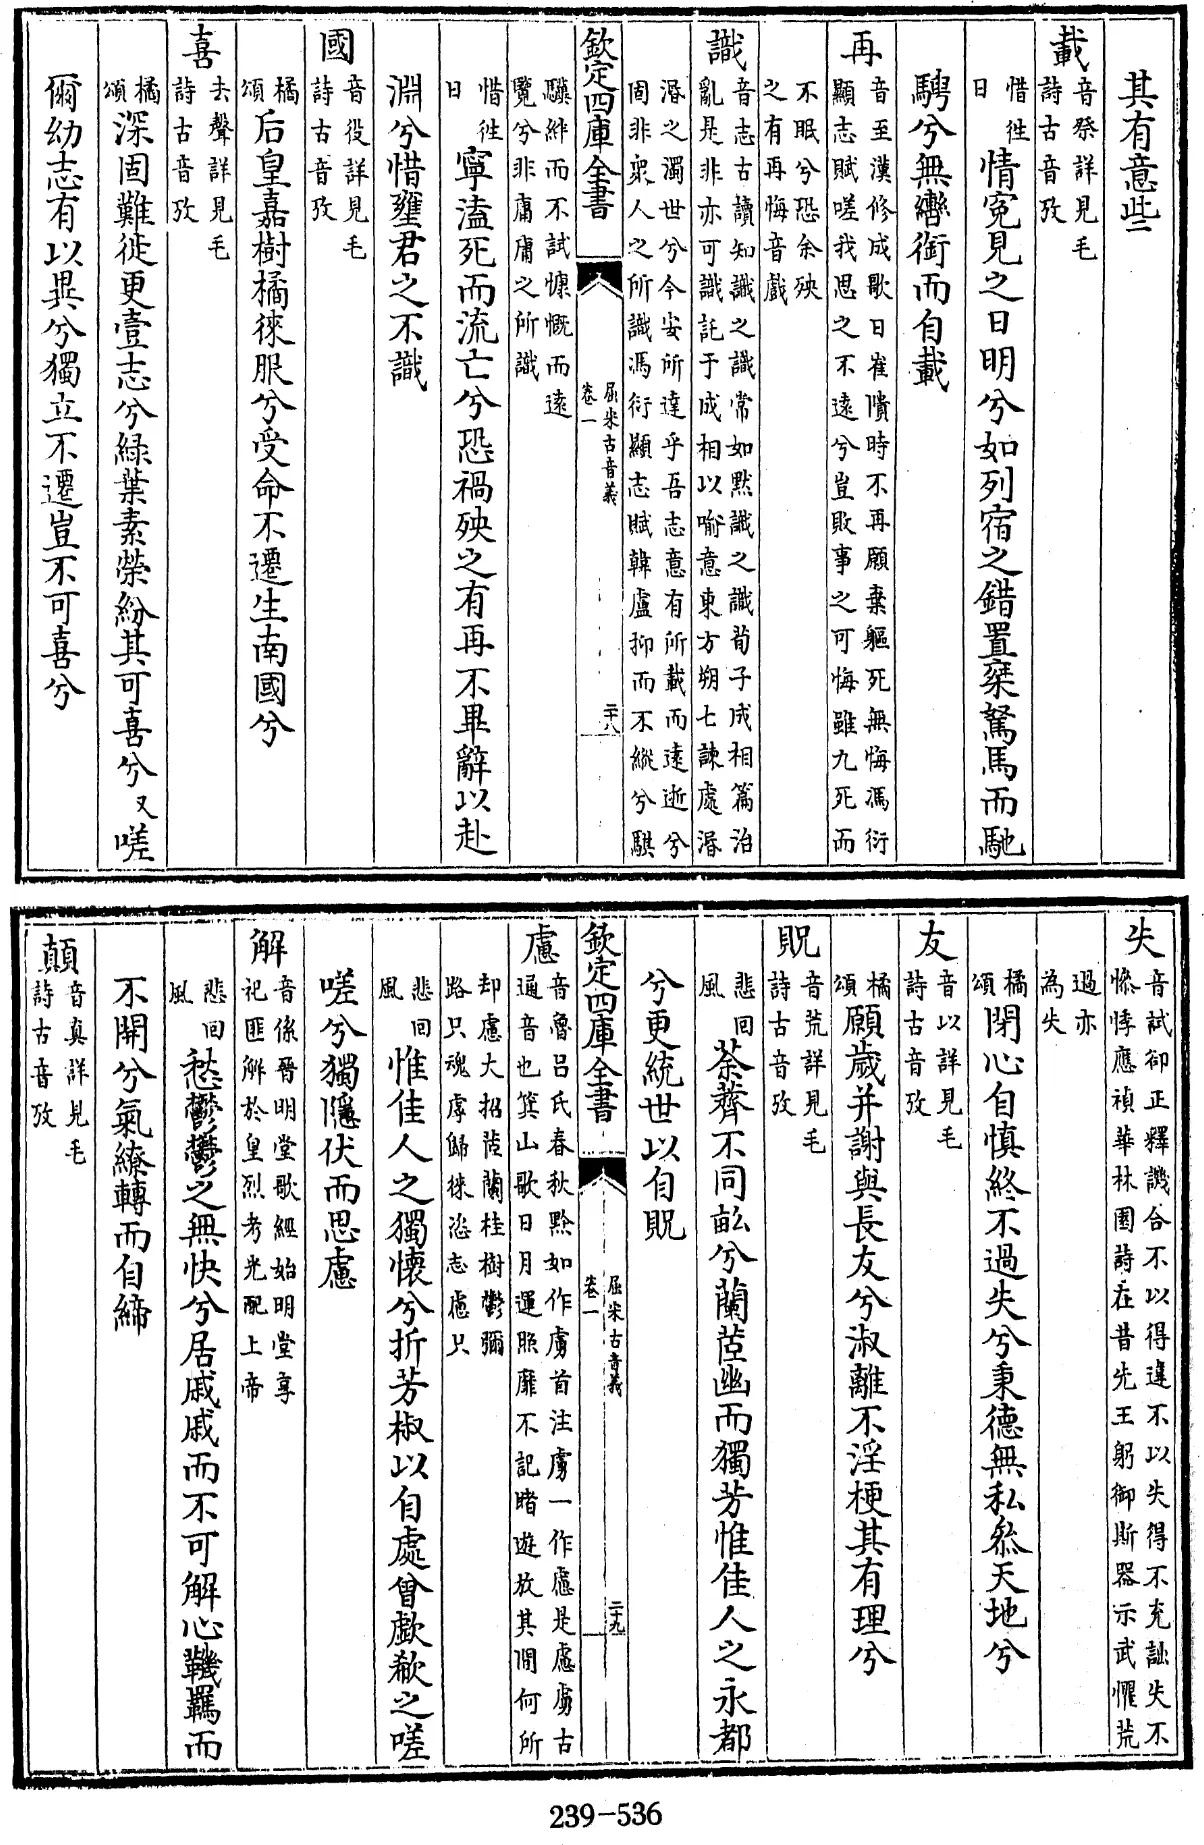 其有意些
載
音祭詳見毛
詩古音攷
惜往
日
情冤見之日明兮如列宿之錯置椉駑馬而馳
騁兮無轡銜而自載
再
音至漢修成歌曰崔隤時不再願棄軀死無悔馮衍
顯志賦嗟我思之不遠兮豈敗事之可悔雖九死而
不眠兮恐余殃
之有再悔音戲
識
音志古讀知識之識常如默識之識荀子成相篇治
亂是非亦可識託于成相以喻意東方朔七諫處湣
湣之濁世兮今安所達乎吾志意有所載而遠逝兮
固非衆人之所識馮衍顯志賦韓盧抑而不縱兮騏
欽定四庫全書
屈宋古音義
卷一
二十八
驥絆而不試慷慨而遠
覽兮非庸庸之所識
惜往
日
寧溘死而流亡兮恐禍殃之有再不畢辭以赴
淵兮惜壅君之不識
國
音役詳見毛
詩古音攷
橘
頌
后皇嘉樹橘徠服兮受命不遷生南國兮
喜
去聲詳見毛
詩古音攷
橘
頌
深固難徙更壹志兮緑葉素榮紛其可喜兮又嗟
爾幼志有以異兮獨立不遷豈不可喜兮
失
音試郤正釋譏合不以得違不以失得不充詘失不
慘悸應禎華林園詩在昔先王躬御斯器示武懼荒
過亦
為失
橘
頌
閉心自慎終不過失兮秉德無私叅天地兮
友
音以詳見毛
詩古音攷
橘
頌
願歲并謝與長友兮淑離不淫梗其有理兮
貺
音荒詳見毛
詩古音攷
悲回
風
荼薺不同畝兮蘭茝幽而獨芳惟佳人之永都
兮更統世以自貺
欽定四庫全書
屈宋古音義
卷一
二十九
慮
音魯吕氏春秋黔如作虜首注虜一作慮是慮虜古
通音也箕山歌日月運照靡不記睹遊放其間何所
却慮大招茝蘭桂樹鬱彌
路只魂虖歸徠恣志慮只
悲回
風
惟佳人之獨懷兮折芳椒以自處曾歔欷之嗟
嗟兮獨隱伏而思慮
解
音係晉明堂歌經始明堂享
祀匪解於皇烈考光配上帝
悲回
風
愁鬱鬱之無快兮居戚戚而不可解心鞿羈而
不開兮氣繚轉而自締
顛
音真詳見毛
詩古音攷
239-536